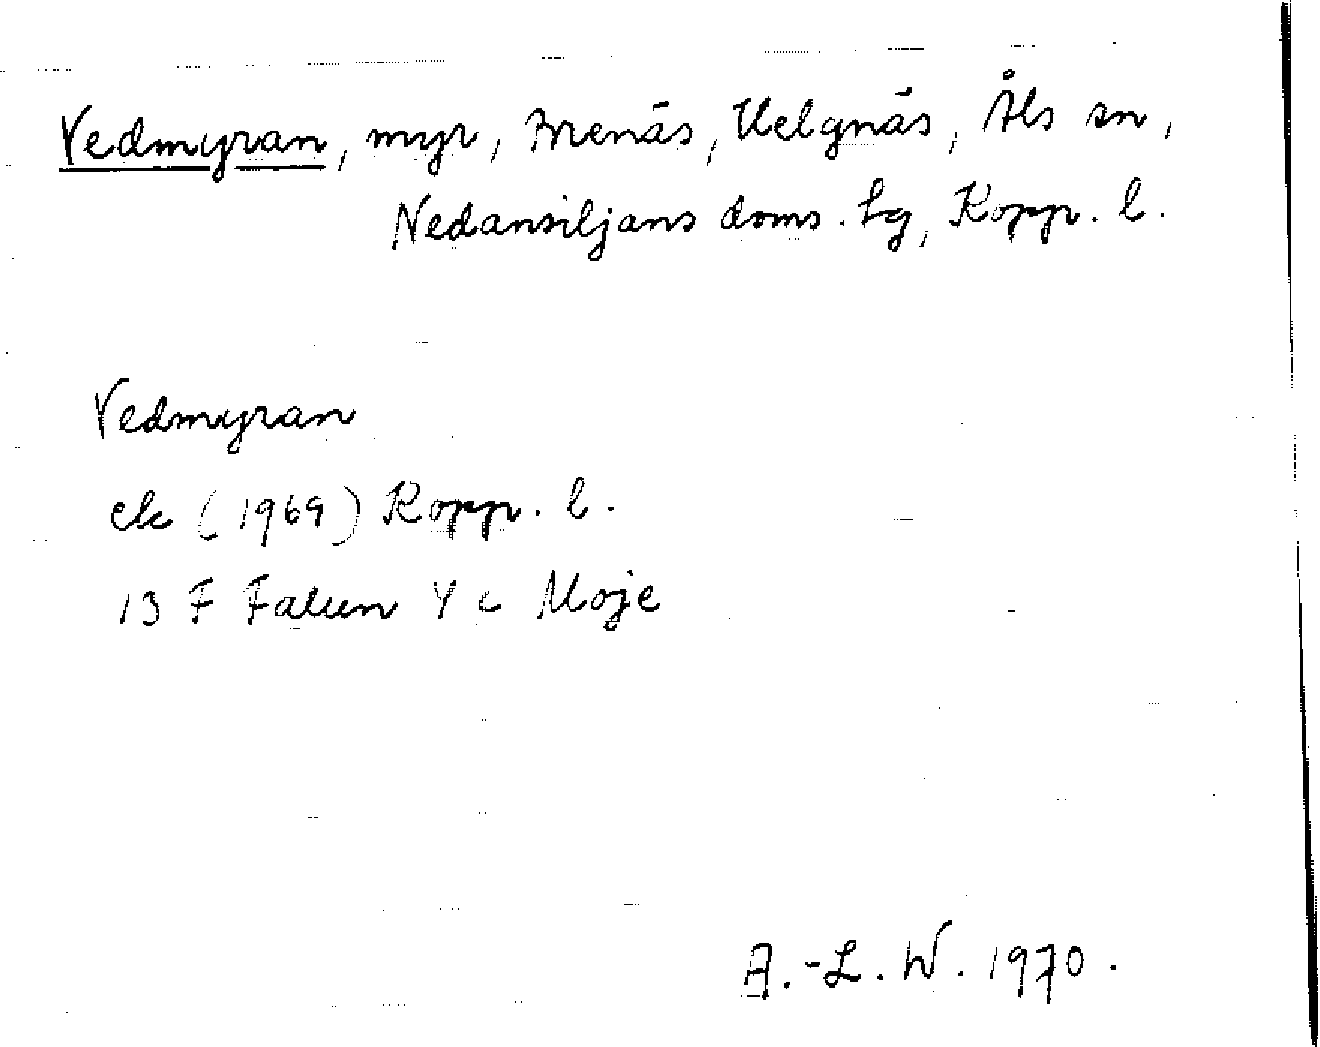 Vedmyran, myr, Brenäs, Helgnäs, Åls sn,
Nedansiljans doms. hg, Kopp. l.
Vedmyran
ek (1969) Kopp. l.
13 F Falun Y c Moje
A.-L. W. 1970.